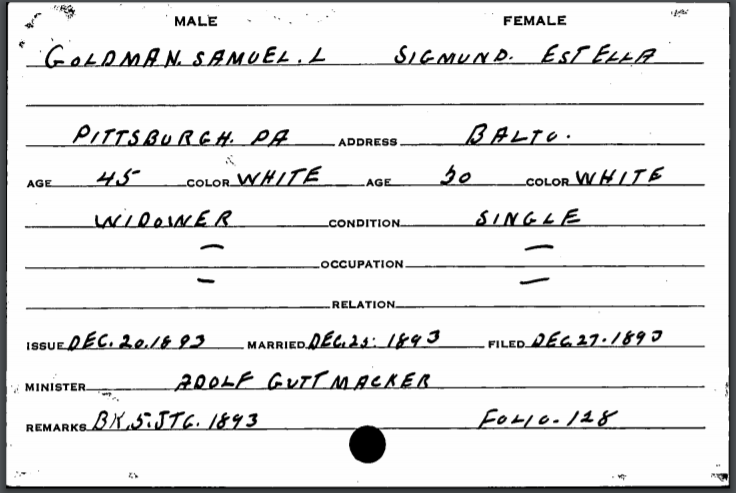 MALE FEMALE
GOLDMAN. SAMUEL. L SIGMUND. ESTELLA
PITTSBURGH. PA ADDRESS BALTO.
AGE 45 COLOR WHITE AGE 30 COLOR WHITE
WIDOWER CONDITION SINGLE
— OCCUPATION —
— RELATION —
ISSUE DEC. 20. 1893 MARRIED DEC. 25: 1893 FILED DEC. 27. 1893
MINISTER ADOLF GUTTMACKER
REMARKS BK. 5. JTG. 1893 FOLIO. 128